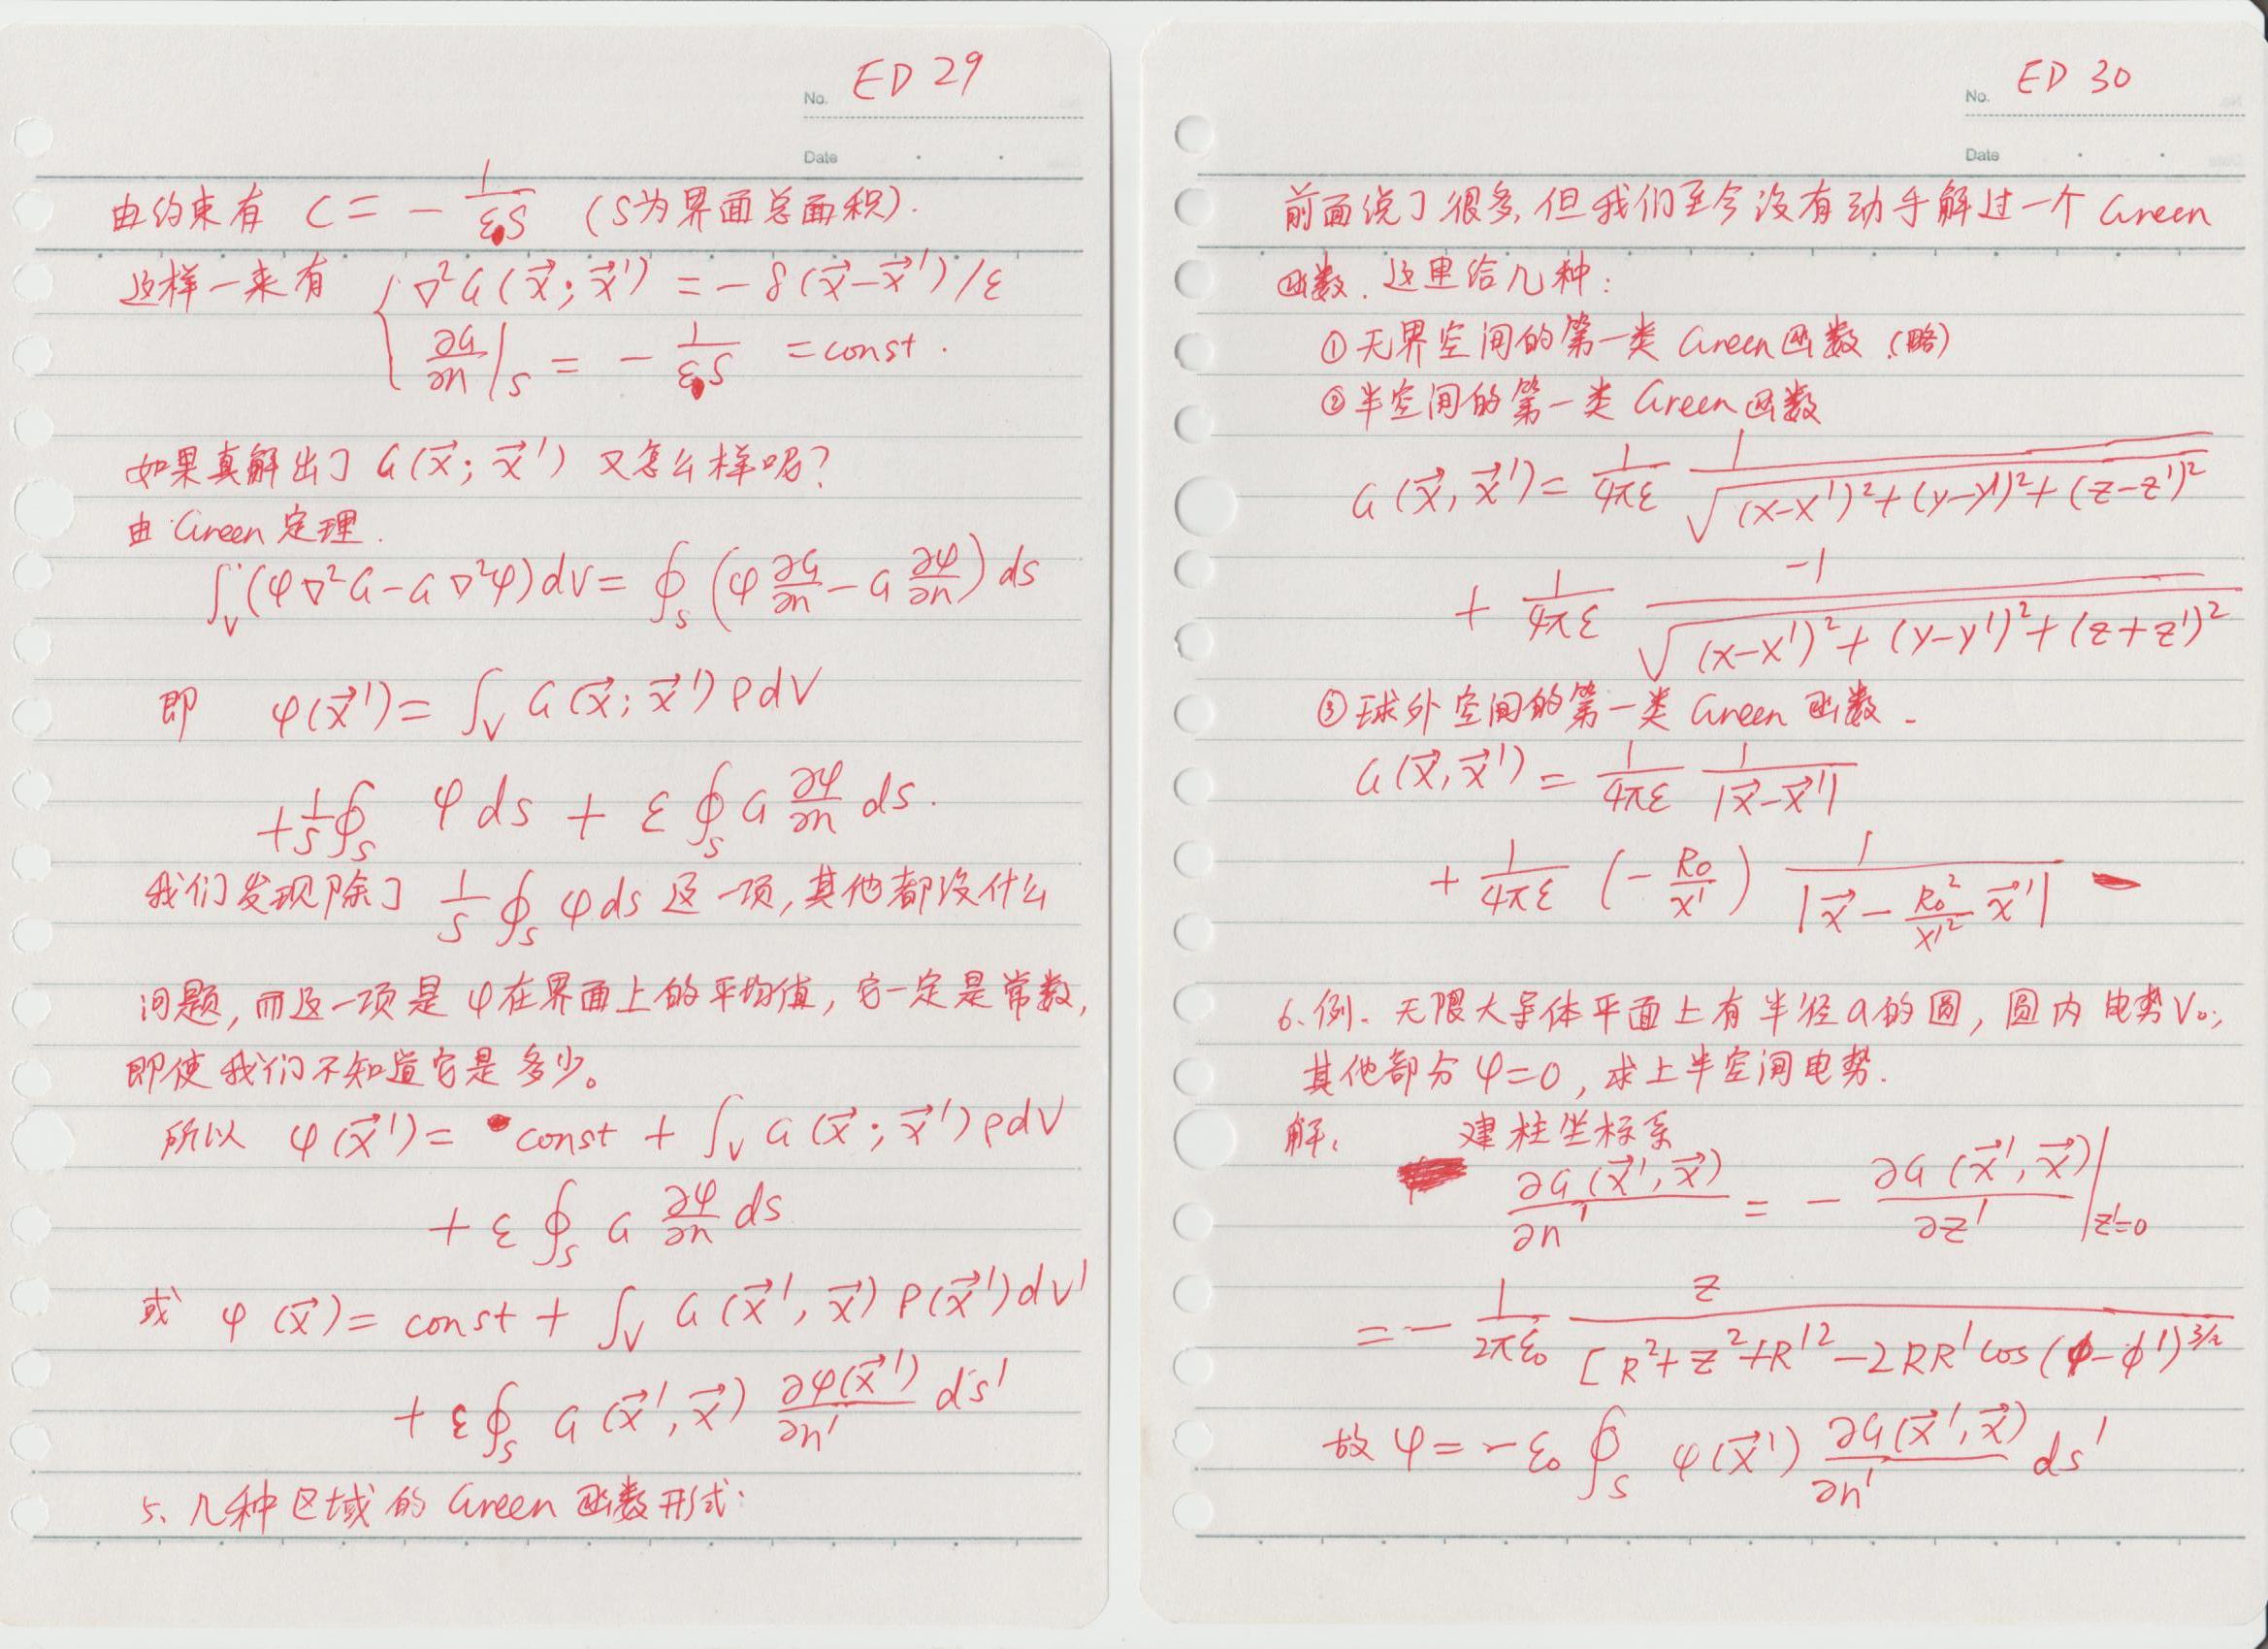 No. ED 29
Date
由约束有 C = - 1/(εS) (S为界面总面积).
这样一来有 { ∇²G(x⃗; x⃗') = -δ(x⃗-x⃗')/ε
∂G/∂n|_S = - 1/(εS) = const.
如果真解出了 G(x⃗; x⃗') 又怎么样呢?
由 Green 定理.
∫_V (φ∇²G - G∇²φ) dV = ∮_S (φ ∂G/∂n - G ∂φ/∂n) ds
即 φ(x⃗') = ∫_V G(x⃗; x⃗') ρ dV
+ 1/S ∮_S φ ds + ε ∮_S G ∂φ/∂n ds.
我们发现除了 1/S ∮_S φ ds 这一项, 其他都没什么
问题, 而这一项是 φ 在界面上的平均值, 它一定是常数,
即使我们不知道它是多少。
所以 φ(x⃗') = const + ∫_V G(x⃗; x⃗') ρ dV
+ ε ∮_S G ∂φ/∂n ds
或 φ(x⃗) = const + ∫_V G(x⃗', x⃗) ρ(x⃗') dV'
+ ε ∮_S G(x⃗', x⃗) ∂φ(x⃗')/∂n' ds'
5、几种区域的 Green 函数形式:
No. ED 30
Date
前面说了很多, 但我们至今没有动手解过一个 Green
函数. 这里给几种:
① 无界空间的第一类 Green 函数 (略)
② 半空间的第一类 Green 函数
G(x⃗, x⃗') = 1/(4πε) 1/√((x-x')² + (y-y')² + (z-z')²)
+ 1/(4πε) -1/√((x-x')² + (y-y')² + (z+z')²)
③ 球外空间的第一类 Green 函数.
G(x⃗, x⃗') = 1/(4πε) 1/|x⃗-x⃗'|
+ 1/(4πε) (- R₀/x') 1/|x⃗ - R₀²/x'² x⃗'|
6、例. 无限大导体平面上有半径 a 的圆, 圆内电势 V₀;
其他部分 φ=0, 求上半空间电势.
解: 建柱坐标系
∂G(x⃗', x⃗)/∂n' = - ∂G(x⃗', x⃗)/∂z' |_{z'=0}
= - 1/(2πε₀) z/[R² + z² + R'² - 2RR' cos(φ-φ')^{3/2}
故 φ = -ε₀ ∮_S φ(x⃗') ∂G(x⃗', x⃗)/∂n' ds'